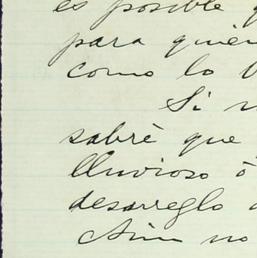 es posible
para quien
como lo
Si
sabrè que
lluvioso ó
desarreglo
Aún no